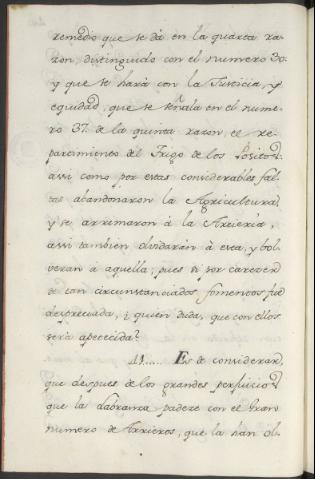 remedio que se dà en la quarta ra-
zon, distinguido con el numero 30.
y que se harà con la Justicia, y
equidad, que se señala en el nume-
ro 37. de la quinta razon, el re-
partimiento del Trigo de los Positos
assi como por estas considerables fal-
tas abandonaron la Agricultura
y se arrimaron à la Arrierìa,
assi tambien olvidaràn à esta, y bol-
veran à aquella; pues si por carecer
de tan circunstanciados fomentos fue
despreciada, ¿ quien duda, que con ellos
serà apetecida?
41..... Es de considerar,
que despues de los grandes perjuicios
que la Labranza padece con el gran
numero de Arrieros, que la han ol-